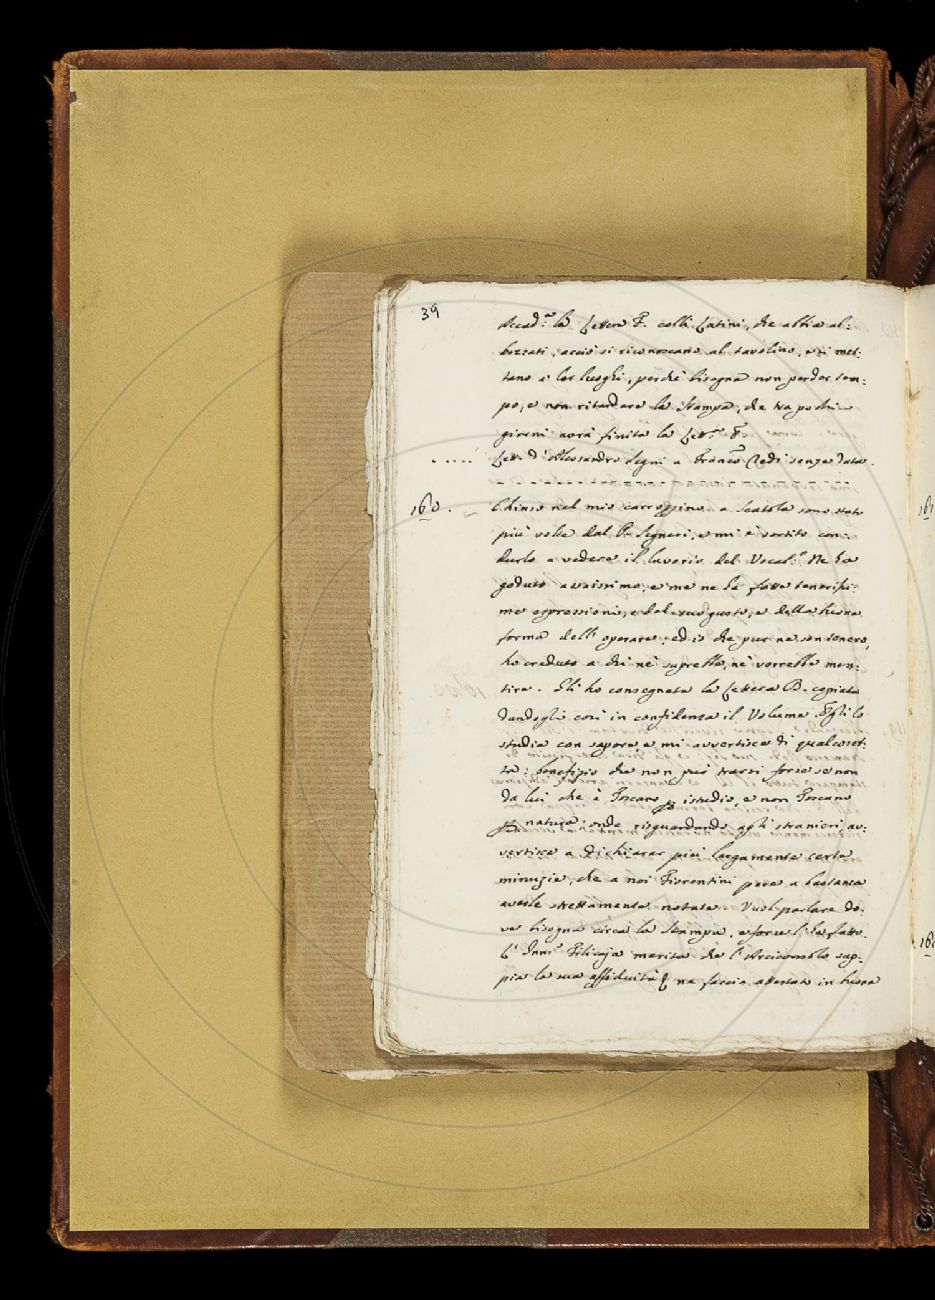 39
Accad.ª la Lettera F. colli Latini, che altra al:
bezzati, acciò si riconoscano al tavolino, e si met:
tano a' lor luoghi, perchè bisogna non perder tem:
po, e non ritardare la Stampa, che tra pochi
giorni avrà finita la Lett.ª F.
..... Lett. d'Alessandro Segni a Franc.co Redi senza data.
160. Chiuso nel mio carrozzino a Scatola sono stato
più volte dal P. Segneri, e mi è sortito con:
durlo a vedere il lavorio del Vocab.º Ne ha
goduto assaissimo, e me ne ha fatte tenerissi:
me espressioni, e del suo gusto, e della buona
forma dell'operare, ed io che pur ne son tenero,
ho creduto a chi nè saprebbe, nè vorrebbe men:
tire. Gli ho consegnata la Lettera B. copiata
dandogli così in confidenza il Volume. Egli lo
studia con sapore, e mi avvertisce di qualcoset:
ta: benefizio che non può trarsi forse se non
da lui che è Toscano p istudio, e non Toscano
p natura: onde risguardando agli stranieri av:
vertisce a dichiarar più largamente certe
minuzie, che a noi Fiorentini pare a bastanza
averle strettamente notate. Vuol parlare do:
ve bisogna circa la Stampa, e forse l'ha fatto.
L' Filicaja merita che l'Arciconsolo sap:
pia la sua assiduità ne faccia attestato in buona